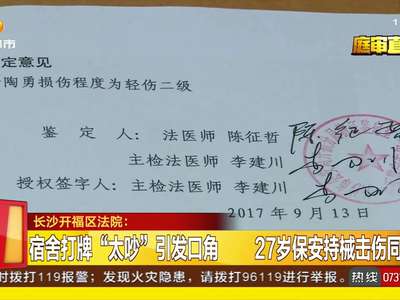 庭审直
定意见
陶勇损伤程度为轻伤二级
鉴 定 人：法医师 陈征哲
主检法医师 李建川
授权签字人：主检法医师 李建川
2017 年 9 月 13 日
长沙开福区法院：
宿舍打牌“太吵”引发口角 27岁保安持械击伤同
时拨打119报警；发现火灾隐患，请拨打96119进行举报。 热线 073